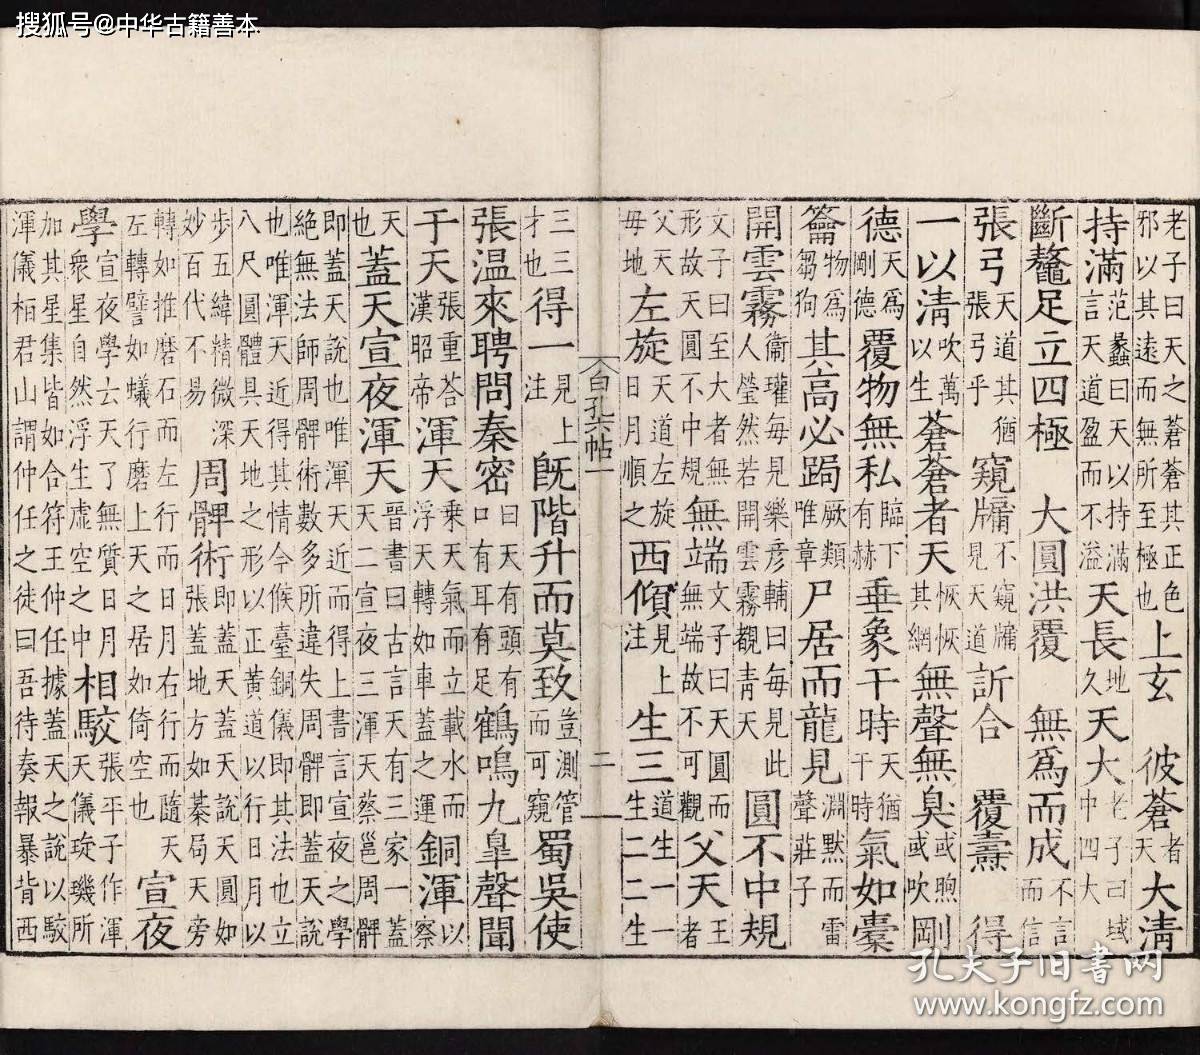 搜狐号@中华古籍善本
老子曰天之蒼蒼其正色邪以其遠而無所至極也上玄　彼蒼者天大清
持滿范蠡曰天以持滿言天道盈而不溢天長地久天大老子曰域中四大
斷鼇足立四極　大圓洪覆　無爲而成不言而信
張弓天道其猶張弓乎窺牖不窺牖見天道訢合　覆燾　得
一以清吹萬以生蒼蒼者天恢恢其網無聲無臭或煦或吹剛
德天爲剛德覆物無私臨下有赫垂象干時天猶干時氣如橐
籥物爲芻狗其高必跼厥類唯章尸居而龍見淵默而雷聲莊子
開雲霧衞瓘每見樂彥輔曰每見此人瑩然若開雲霧覩青天圓不中規
文子曰至大者無形故天圓不中規無端文子曰天圓而無端故不可觀父天王者
父天毋地左旋天道左旋日月順之西傾見上注生三道生一一生二二生
白孔六帖一　二
三三才也得一見上注既階升而莫致豈測管而可窺蜀吳使
張温來聘問秦密曰天有頭有口有耳有足鶴鳴九臯聲聞
于天張重荅漢昭帝渾天乗天氣而立載水而浮天轉如車蓋之運銅渾以察
天也蓋天宣夜渾天晉書曰古言天有三家一蓋天二宣夜三渾天蔡邕周髀
即蓋天說也唯渾天近而得上書言宣夜之學絕無法師周髀術數多所違失周髀即蓋天說
也唯渾天近得其情今候臺銅儀即其法也立八尺圓體具天地之形以正黃道以行日月以
步五緯精微深妙百代不易周髀術行即蓋天蓋天說天圓如張蓋地方如棊局天旁
轉如推磨石而左行而日月右行而隨天左轉譬如蟻行磨上天之居如倚空也宣夜
學宣夜學云天了無質日月衆星自然浮生虛空之中相駮張平子作渾天儀琁璣所
加其星集皆如合符王仲任據蓋天之說以駮渾儀栢君山謂仲任之徒曰吾待奏報暴背西
孔夫子旧书网
www.kongfz.com